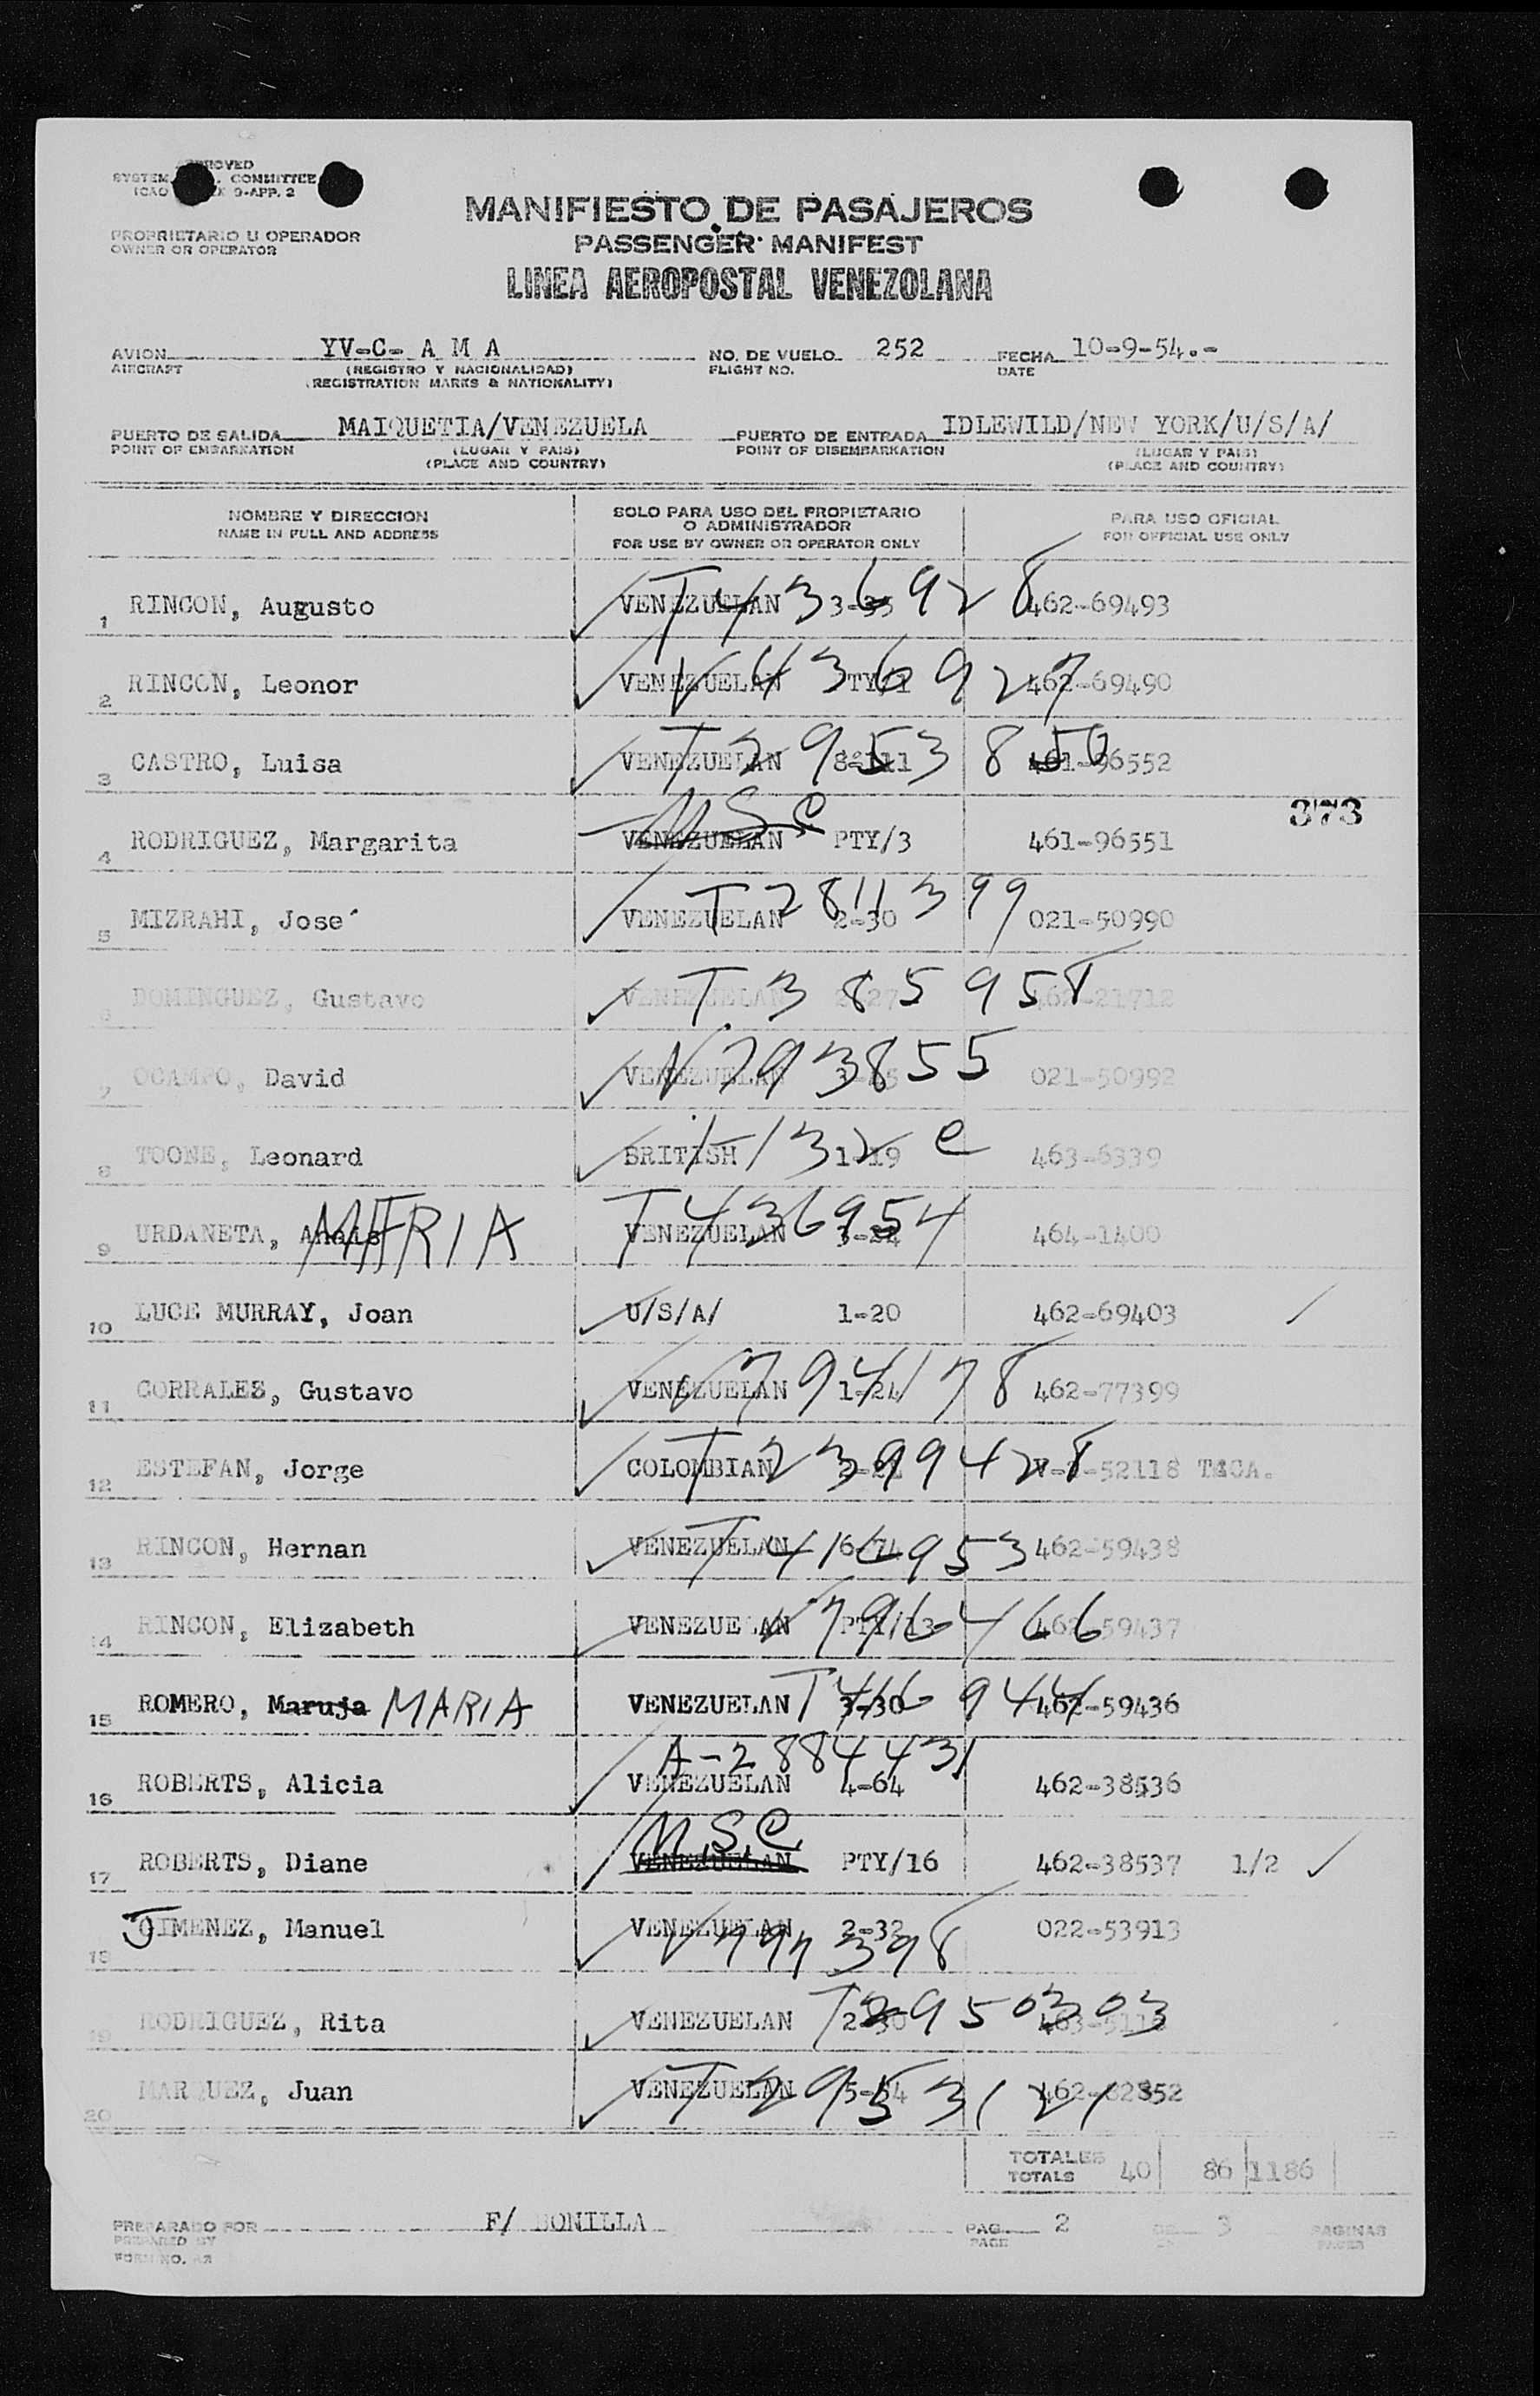 APPROVED
SYSTEM COMMITTEE
ICAO 9-APP. 2
PROPRIETARIO U OPERADOR
OWNER OR OPERATOR
MANIFIESTO DE PASAJEROS
PASSENGER MANIFEST
LINEA AEROPOSTAL VENEZOLANA
AVION YV-C- A M A NO. DE VUELO 252 FECHA 10-9-54.-
AIRCRAFT (REGISTRO Y NACIONALIDAD) FLIGHT NO. DATE
(REGISTRATION MARKS & NATIONALITY)
PUERTO DE SALIDA MAIQUETIA/VENEZUELA PUERTO DE ENTRADA IDLEWILD/NEW YORK/U/S/A/
POINT OF EMBARKATION (LUGAR Y PAIS) POINT OF DISEMBARKATION (LUGAR Y PAIS)
(PLACE AND COUNTRY) (PLACE AND COUNTRY)
NOMBRE Y DIRECCION SOLO PARA USO DEL PROPIETARIO PARA USO OFICIAL
NAME IN FULL AND ADDRESS O ADMINISTRADOR FOR OFFICIAL USE ONLY
FOR USE BY OWNER OR OPERATOR ONLY
1 RINCON, Augusto VENEZUELAN T436928 462-69493
2 RINCON, Leonor VENEZUELAN PTY/1 V436927 462-69490
3 CASTRO, Luisa VENEZUELAN T2953850 461-96552
373
4 RODRIGUEZ, Margarita VENEZUELAN M S C PTY/3 461-96551
5 MIZRAHI, Jose´ VENEZUELAN 2-30 T2811399 021-50990
6 DOMINGUEZ, Gustavo VENEZUELAN T385958 462-21712
7 OCAMPO, David VENEZUELAN V793855 021-50992
8 TOONE, Leonard BRITISH 1-19 463-6339
9 URDANETA, MARIA VENEZUELAN T436954 464-1400
10 LUCE MURRAY, Joan U/S/A/ 1-20 462-69403
11 CORRALES, Gustavo VENEZUELAN 1-24 V794178 462-77399
12 ESTEFAN, Jorge COLOMBIAN T2399428 52118 TACA.
13 RINCON, Hernan VENEZUELAN T416953 462-59438
14 RINCON, Elizabeth VENEZUELAN PTY/13 V796466 462-59437
15 ROMERO, Maruja MARIA VENEZUELAN 3-30 T416944 462-59436
16 ROBERTS, Alicia VENEZUELAN 4-64 A-2884431 462-38536
17 ROBERTS, Diane VENEZUELAN M.S.C. PTY/16 462-38537 1/2
18 JIMENEZ, Manuel VENEZUELAN 2-32 V797398 022-53913
19 RODRIGUEZ, Rita VENEZUELAN 2-30 T2950303
20 MARQUEZ, Juan VENEZUELAN T2953121 462-82852
TOTALES 40 86 1186
TOTALS
PREPARADO POR F/ BONILLA PAG. 2 DE 3 PAGINAS
PREPARED BY PAGE OF PAGES
FORM NO.